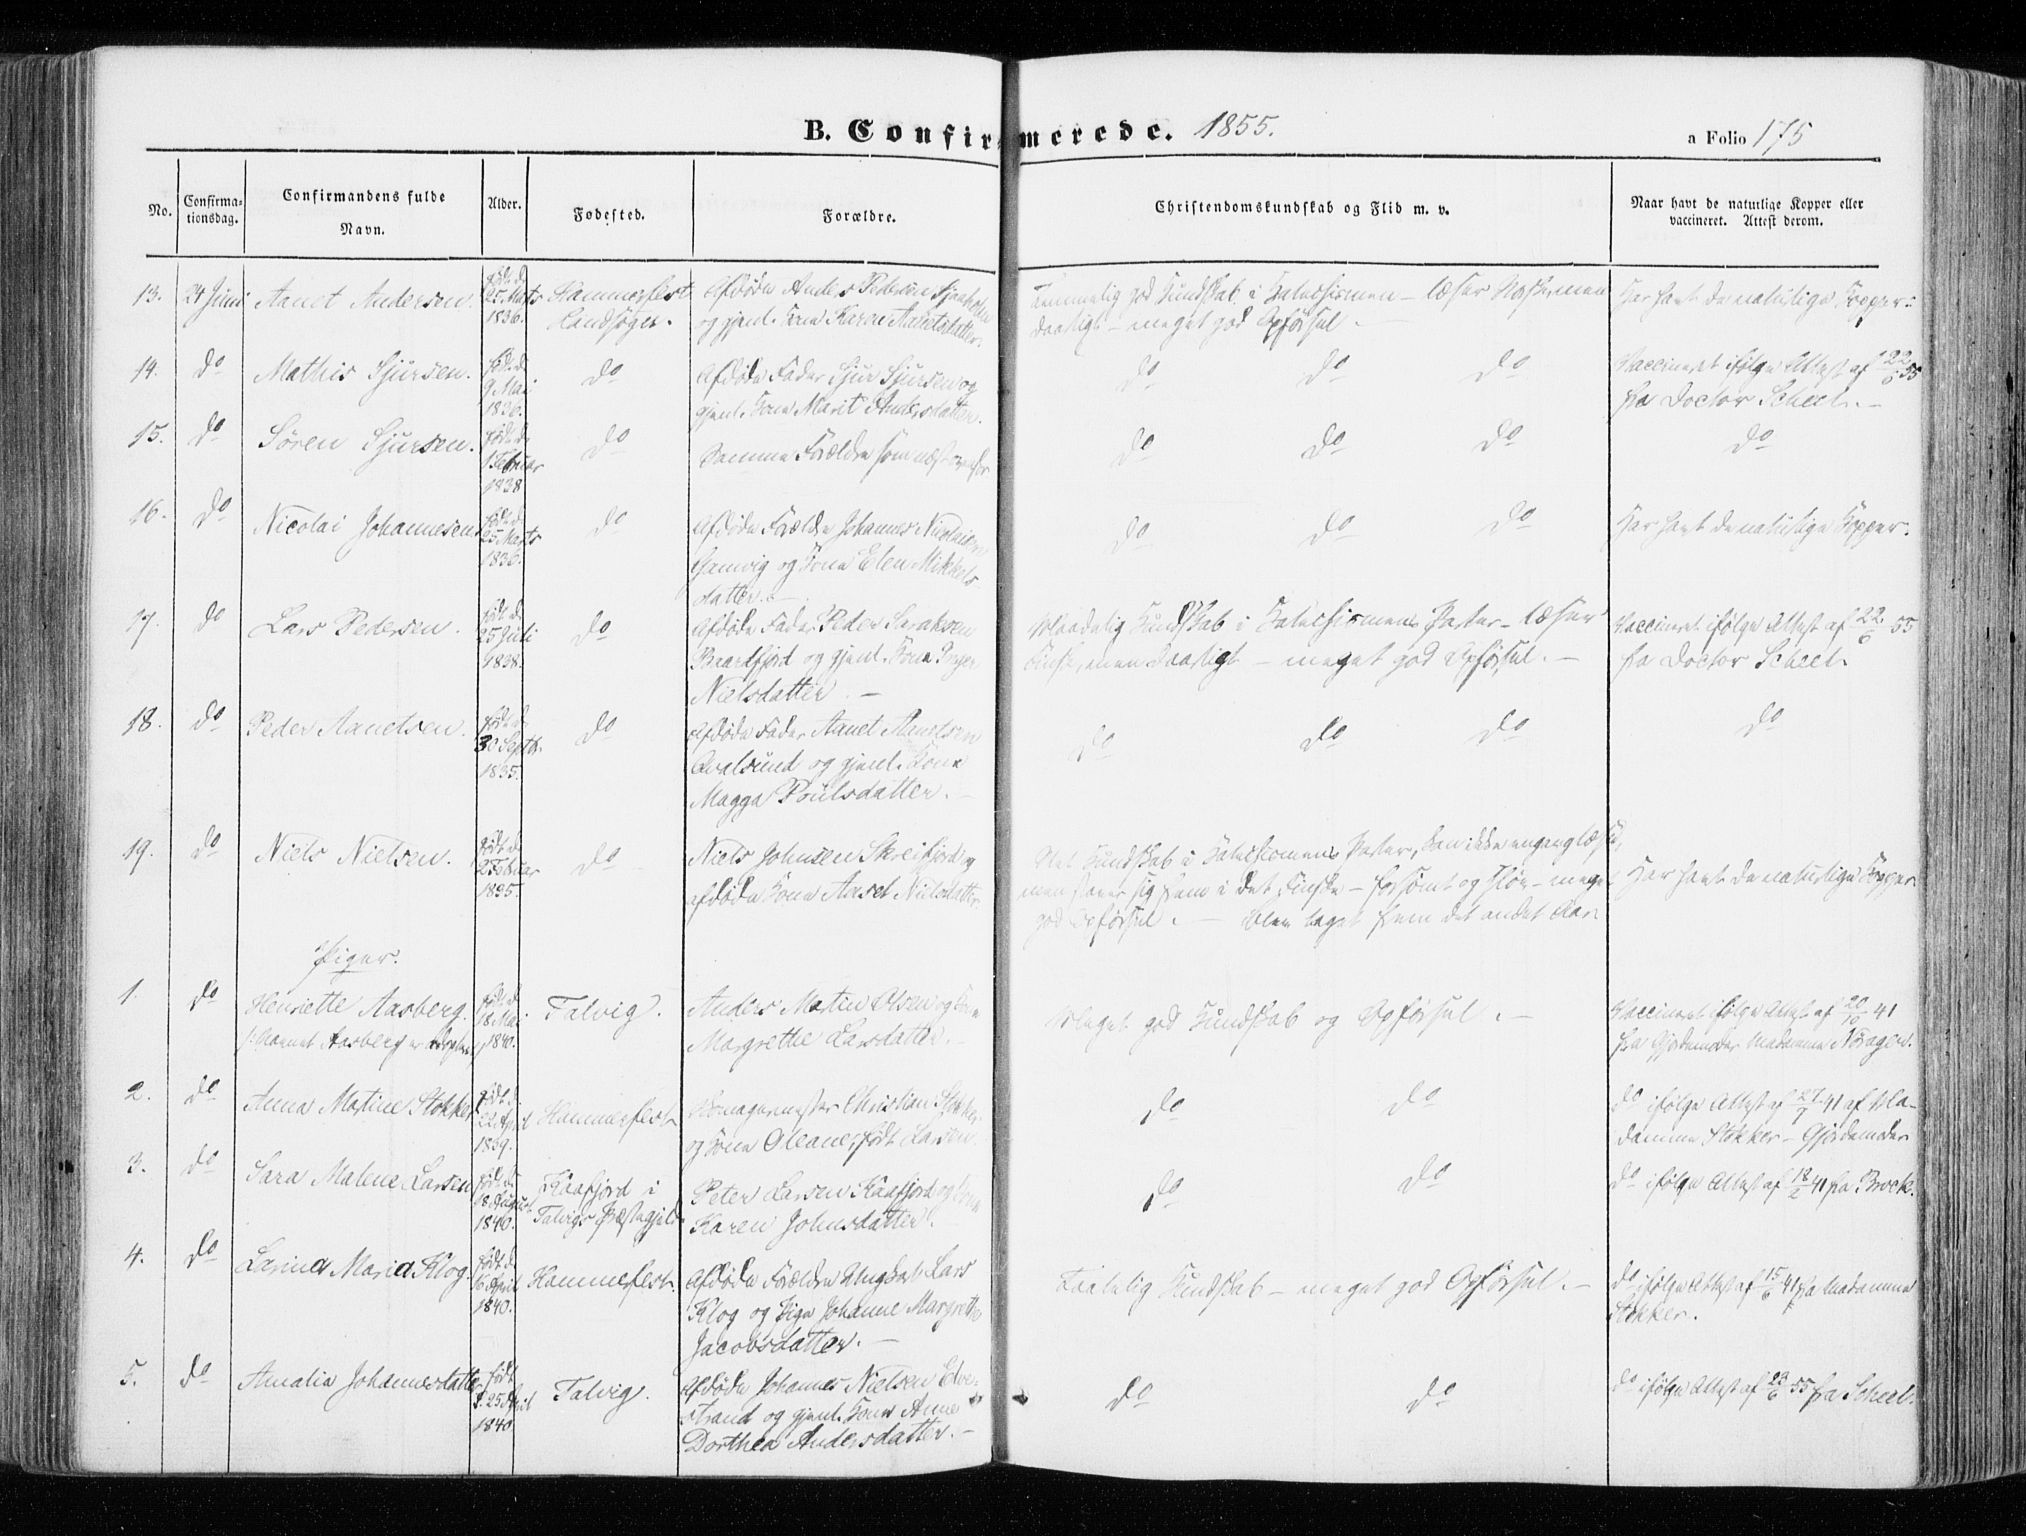 B. Confirmerede. 1855.
a Folio 175
No.
Confirma-
tionsdag.
Confirmandens fulde
Navn.
Alder.
Fødested.
Forældre.
Christendomskundskab og Flid m. v.
Naar havt de naturlige Kopper eller
vaccineret. Attest derom.
13. 24 Juni Aanet Andersen. født d. 25. Marts 1836. Hammerfest Landsogn. Afdøde Anders Pedersen
og gjenl. Kone Karen
Temmelig god Kundskab i Katechismen – læser Norsk, men
daarligt – meget god Opførsel.
Har havt de naturlige Kopper.
14. do Mathis Sjursen. født d. 9 Mai 1836. do Afdøde Fader Sjur Sjursen og
gjenl. Kone Marit Andersdatter.
do do do
Vaccineret ifølge Attest af 22/6 55
fra Doctor Scheel. –
15. do Søren Sjursen. født d. 1 Februar 1838 do Samme Forældre som næst ovenfor
do do do
do
16. do Nicolai Johannesen født d. 25 Marts 1836. do Afdøde Forældre Johannes Nicolaisen
Gamvig og Kone Elen Mikkels-
datter. –
do do do
Har havt de naturlige Kopper.
17. do Lars Pedersen. født d. 25 Juli 1838. do Afdøde Fader Peder Saraksen
Baardfjord og gjenl. Kone Inger
Nielsdatter. –
Maadelig Kundskab i Katechismens Parter – læser
Finsk, men daarligt – meget god Opførsel. –
Vaccineret ifølge Attest af 22/6 55
fra Doctor Scheel.
18. do Peder Aanetsen. født d. 30 Septbr. 1835. do Afdøde Fader Aanet Aanetsen
Qvalsund og gjenl. Kone
Magga Poulsdatter. –
do do do
do
19. do Niels Nielsen. født d. 2 Februar 1835. do Niels Johnsen Skreifjord og
afdøde Kone Aaret Nielsdatter.
Kundskab i Katechismens Parter, kan ikke engang læse,
men staver sig frem i det Finske – forsømt og sløv – meget
god Opførsel. – Blev taget frem det andet Aar
Har havt de naturlige Kopper
Piger.
1. do Henriette Aasberg. født d. 18 Mai 1840. Talvig. Anders Martin Olsen og Kone
Margrethe Larsdatter. –
Meget god Kundskab og Opførsel. –
Vaccineret ifølge Attest af 20/10 41
fra Gjordemoder Madamme
2. do Anna Martine Stokker født d. 22 April 1839. Hammerfest Christian Stokker
og Kone Oleane, født Larsen.
do do
do ifølge Attest af 27/7 41 af Ma-
damme Stokker – Gjordemoder
3. do Sara Malene Larsen født d. 18 August 1840. Kaafjord i
Talvigs Præstegjeld Peter Larsen Kaafjord og Kone
Karen Johnsdatter.
do do
do ifølge Attest af 18/2 41 fra Brock.
4. do Larina Maria Klog. født d. 16 April 1840. Hammerfest. Afdøde Forældre Ungkarl Lars
Klog og Pige Johanne Margrethe
Jacobsdatter. –
Taalelig Kundskab – meget god Opførsel. –
do ifølge Attest af 15/6 41 fra Madamme
Stokker.
5. do Amalia Johannesdatter født d. 25 April 1840 Talvig. Afdøde Johannes Nielsen Elve-
strand og gjenl. Kone Anne
Dorthea Andersdatter. –
do do
do ifølge Attest af 23/6 55 fra Scheel.